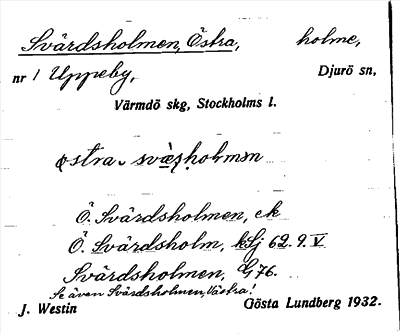 Svärdsholmen, Östra, holme,
nr 1 Uppeby, Djurö sn,
Värmdö skg, Stockholms l.
Ö. Svärdsholmen, ek
Ö. Svärdsholm, kSj 62.9.V
Svärdsholmen, G 76.
Se även Svärdsholmen, Västra!
J. Westin Gösta Lundberg 1932.